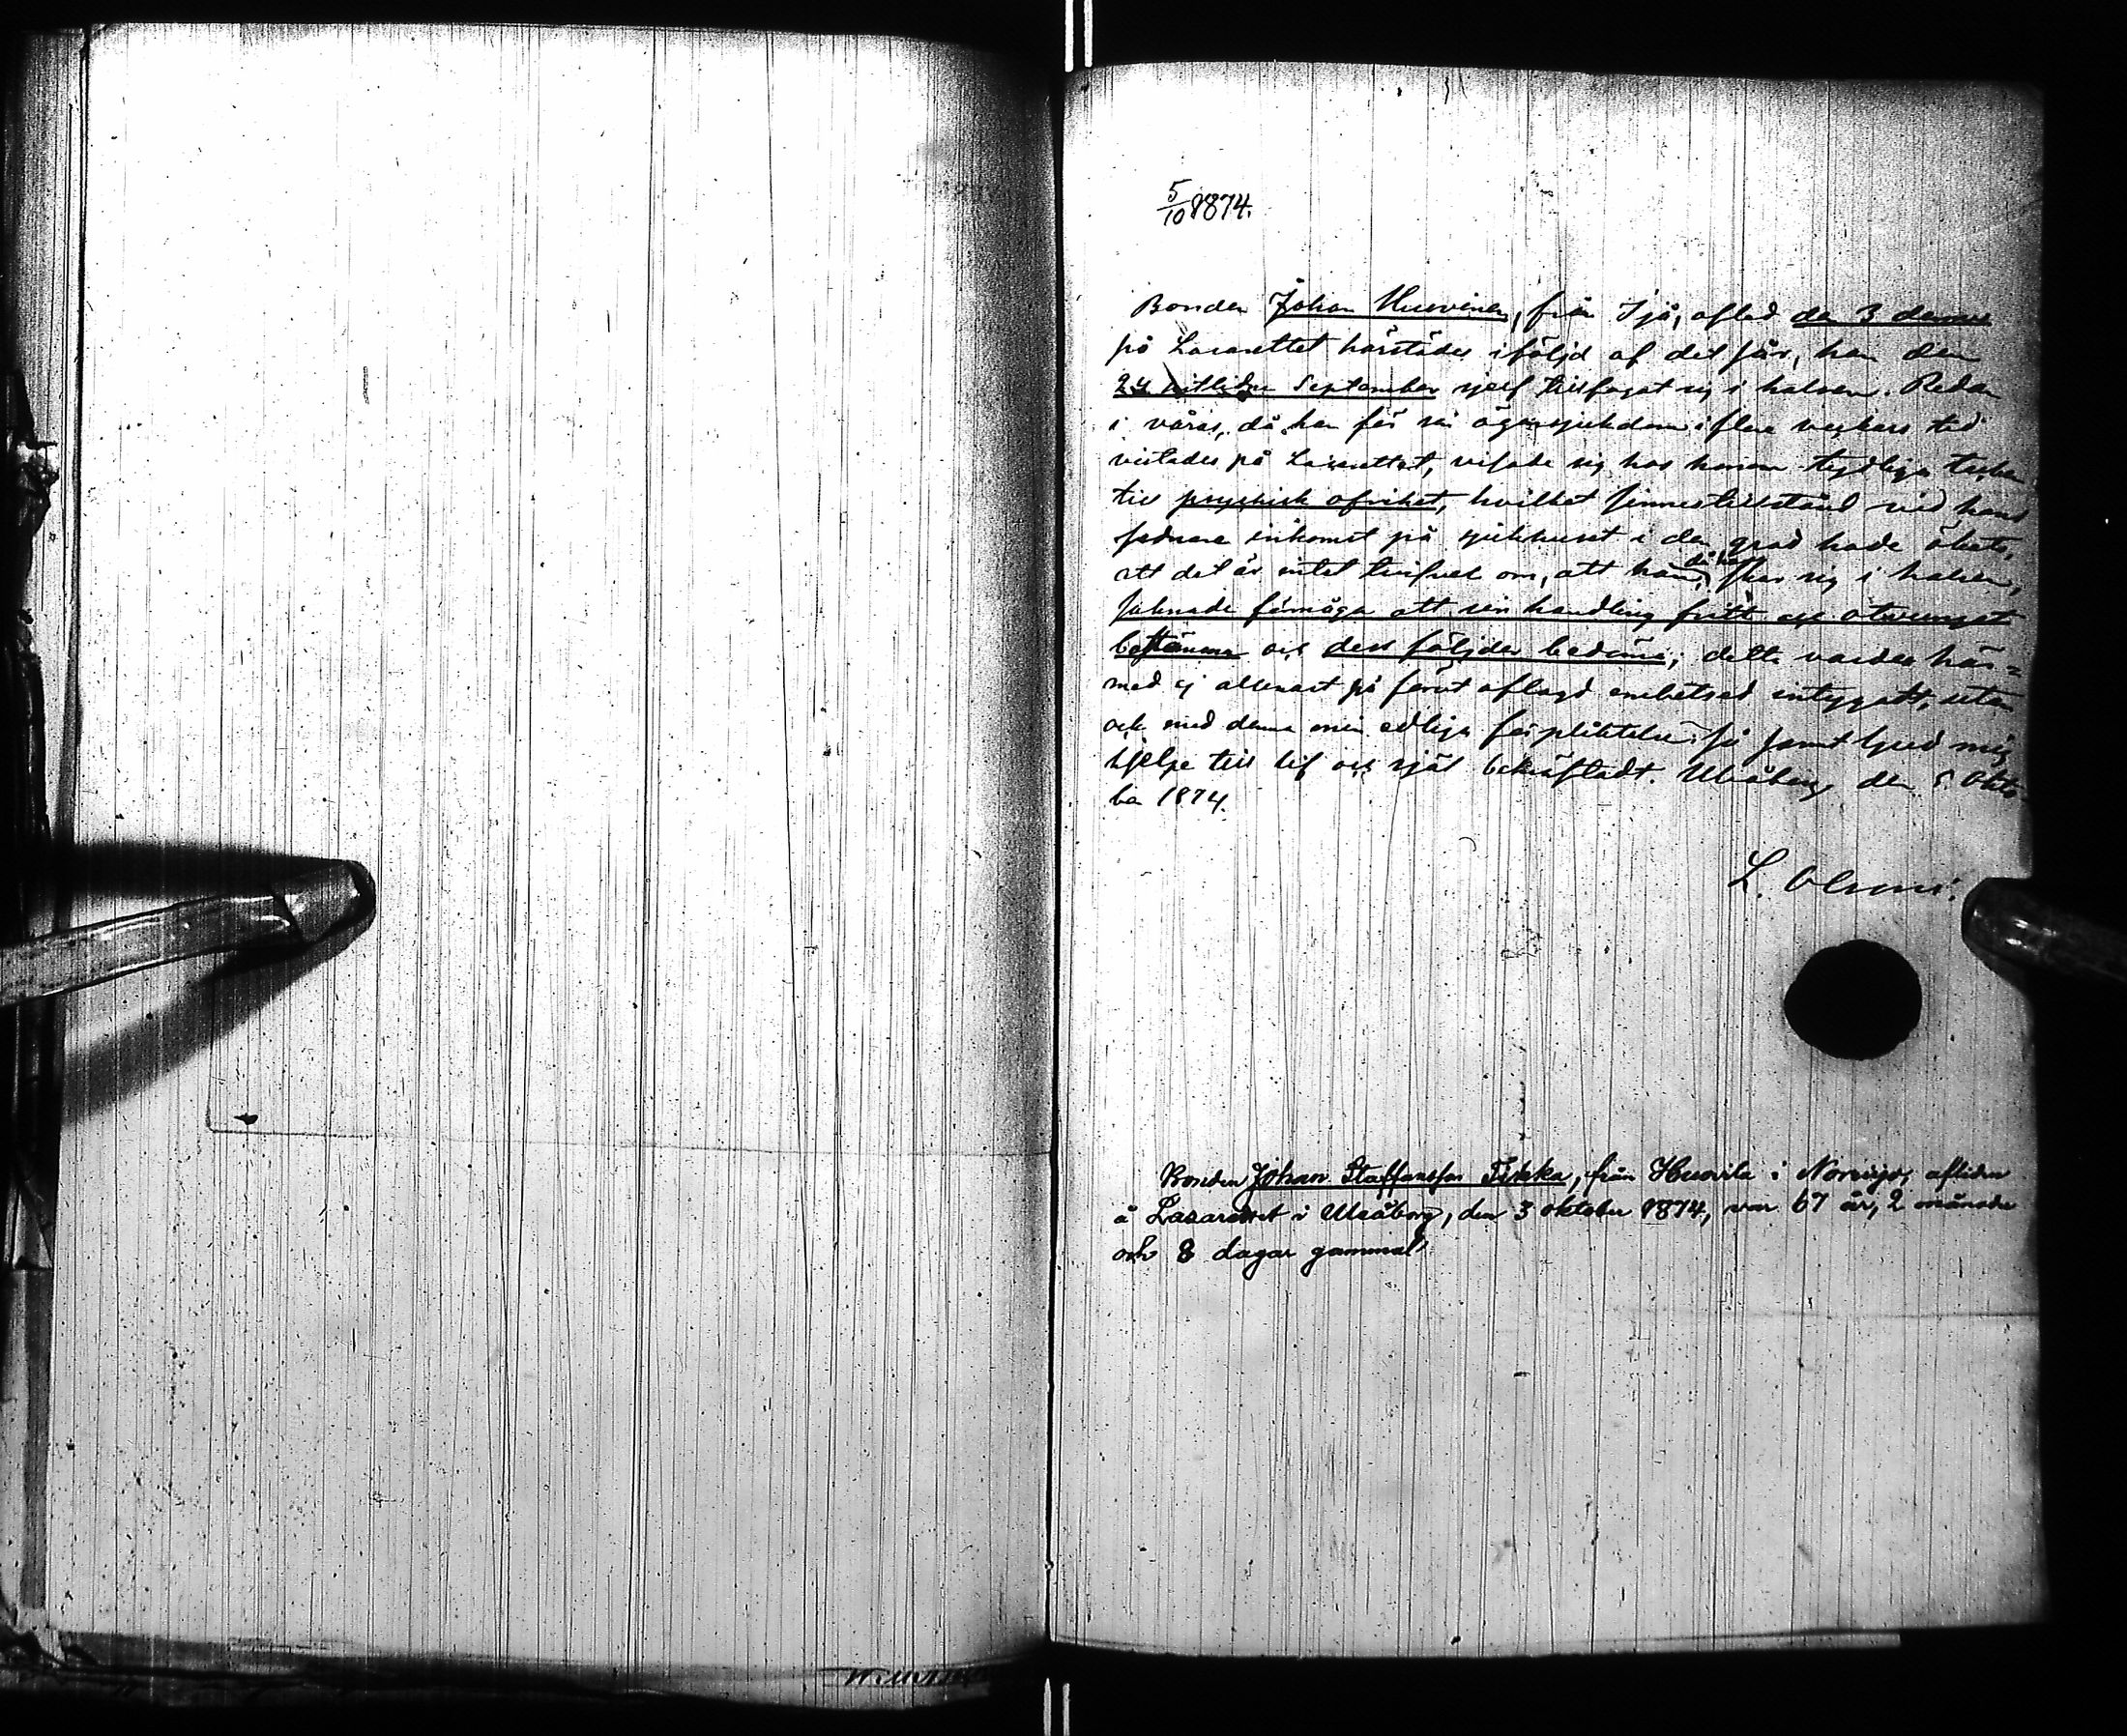 5/10 1874.
Bonden Johan Huovinen, från Ijå, afled den 3 dennes
på Lazarettet härstädes i följd af det sår, han den
24 sistlidne September sjelf tillfogat sig i halsen. Redan
i våras, då han för sin ögonsjukdom i flere veckors tid
vistades på Lazarettet, visade sig hos honom tydliga tecken
till psychisk ofrihet, hvilket sinnestillstånd vid hans
sednare inkomst på sjukhuset i den grad hade ökats,
att det är intet tvifvel om, att han, då han skar sig i halsen,
saknade förmåga att sin handling fritt och otvunget
bestämma och dess följder bedöma; detta varder här-
med ej allenast på förut aflagd embetsed intygadt, utan
ock med denna min edliga förpliktelse så sant Gud mig
hjelpe till lif och själ bekräftadt. Uleåborg den 5 Okto-
ber 1874.
L.
Bonden Johan Staffansson Tikka, från Huovila i afliden
å Lazarettet i Uleåborg, den 3 oktober 1874, var 67 år, 2 månader
och 8 dagar gammal